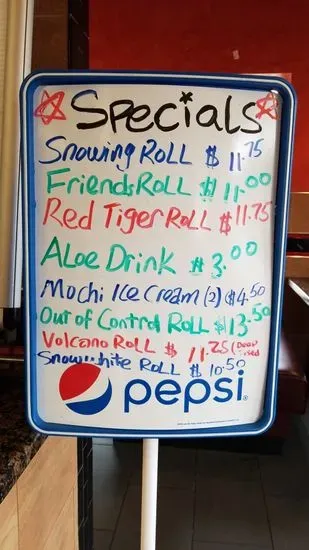 Specials
Snowing Roll $11.75
Friends Roll $11.00
Red Tiger Roll $11.75
Aloe Drink $3.00
Mochi Ice Cream (2) $4.50
Out of Control Roll $13.50
Volcano Roll $11.25 (Deep Fried)
Snow white Roll $10.50
pepsi